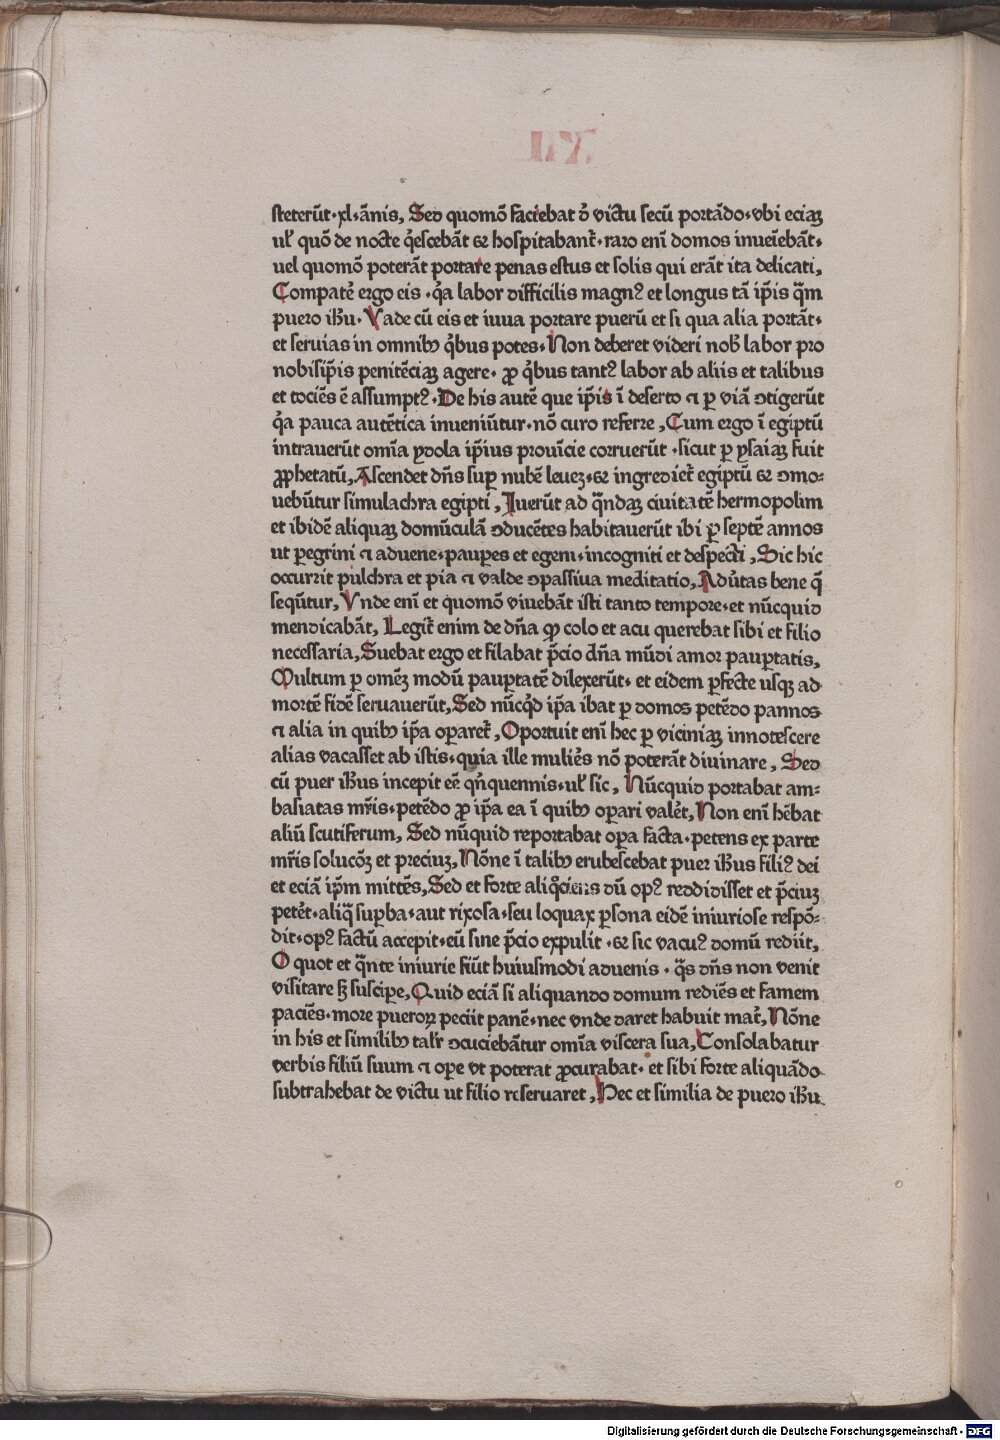 steterūt·xl·ānis, Sed quomō faciebat ð victu secū portādo·vbi eciaꝫ
ul' quō de nocte q̇escebāt ⁊ hospitabant᷑·raro enī domos inueīebāt·
uel quomō poterāt portare penas estus et solis qui erāt ita delicati,
Compatē ergo eis ·q̇a labor difficilis magnꝰ et longus tā ip̄is q̄m
puero ih̄u· Vade cū eis et iuua portare puerū et si qua alia portāt·
et seruias in omnibꝫ q̇bus potes· Non deberet videri nob̄ labor pro
nobisip̄is penitēciaꝫ agere· ꝓ q̇bus tantꝰ labor ab aliis et talibus
et tociēs ē assumptꝰ· De his autē que ip̄is ī deserto ⁊ ꝑ viā ꝯtigerūt
q̇a pauca autētica inueniūtur·nō curo referre, Cum ergo ī egiptū
intrauerūt omīa ydola ip̄ius prouīcie corruerūt ·sicut ꝑ ysaiaꝫ fuit
ꝓphetatū, Ascendet dn̄s suꝑ nubē leueꝫ·⁊ ingrediet᷑ egiptū ⁊ ꝯmo-
uebūtur simulachra egipti, Iuerūt ad q̄ndaꝫ ciuitatē hermopolim
et ibidē aliquaꝫ domūculā ꝯducētes habitauerūt ibi ꝑ septē annos
ut ꝑegrini ⁊ aduene·pauꝑes et egeni·incogniti et despecti, Sic hic
occurrit pulchra et pia ⁊ valde ꝯpassiua meditatio, Adu̇tas bene q̄
seqūtur, Vnde enī et quomō viuebāt isti tanto tempore·et nūcquid
mendicabāt, Legit᷑ enim de dn̄a ꝙ colo et acu querebat sibi et filio
necessaria, Suebat ergo et filabat p̄cio dn̄a mūdi amor pauꝑtatis,
Multum ꝑ omēꝫ modū pauꝑtatē dilexerūt· et eidem ꝑfecte usqꝫ ad
mortē fidē seruauerūt, Sed nūcq̇d ip̄a ibat ꝑ domos petēdo pannos
⁊ alia in quibꝫ ip̄a oꝑaret᷑, Oportuit enī hec ꝑ viciniaꝫ innotescere
alias vacasset ab istis·quia ille muliēs nō poterāt diuinare, Sed
cū puer ih̄us incepit eē qn̄quennis·ul' sic, Nūcquid portabat am-
basiatas mr̄is·petēdo ꝓ ip̄a ea ī quibꝫ oꝑari valēt, Non enī hēbat
aliū scutiferum, Sed nūquid reportabat oꝑa facta·petens ex parte
mr̄is solucōꝫ et preciuꝫ, Nōne ī talibꝫ erubescebat puer ih̄us filiꝰ dei
et eciā ip̄m mittēs, Sed et forte aliq̊ciens dū opꝰ reddidisset et p̄ciuꝫ
petēt·aliq̄ suꝑba·aut rixosa·seu loquax ꝑsona eidē iniuriose respō-
dit·opꝰ factū accepit·eū sine p̄cio expulit ·⁊ sic vacuꝰ domū rediit,
O quot et q̄nte iniurie fiūt huiusmodi aduenis · q̄s dn̄s non venit
visitare sꝫ susciꝑe, Quid eciā si aliquando domum rediēs et famem
paciēs·more pueroꝝ peciit panē·nec vnde daret habuit mat᷑, Nōne
in his et similibꝫ tal'r ꝯcuciebātur omīa viscera sua, Consolabatur
verbis filiū suum ⁊ oꝑe vt poterat ꝓcurabat· et sibi forte aliquādo
subtrahebat de victu ut filio reseruaret, Hec et similia de puero ih̄u
Digitalisierung gefördert durch die Deutsche Forschungsgemeinschaft - DFG